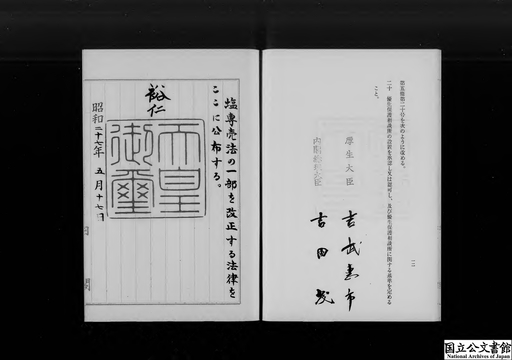 第五條第二十号を次のように改める。
二十　優生保護相談所の設置を承認し又は認可し、及び優生保護相談所に関する基準を定める
こと。
厚生大臣　吉武恵市
内閣総理大臣　吉田茂
塩専売法の一部を改正する法律を
ここに公布する。
裕仁
天皇御璽
昭和二十七年　五月十七日
国立公文書館
National Archives of Japan